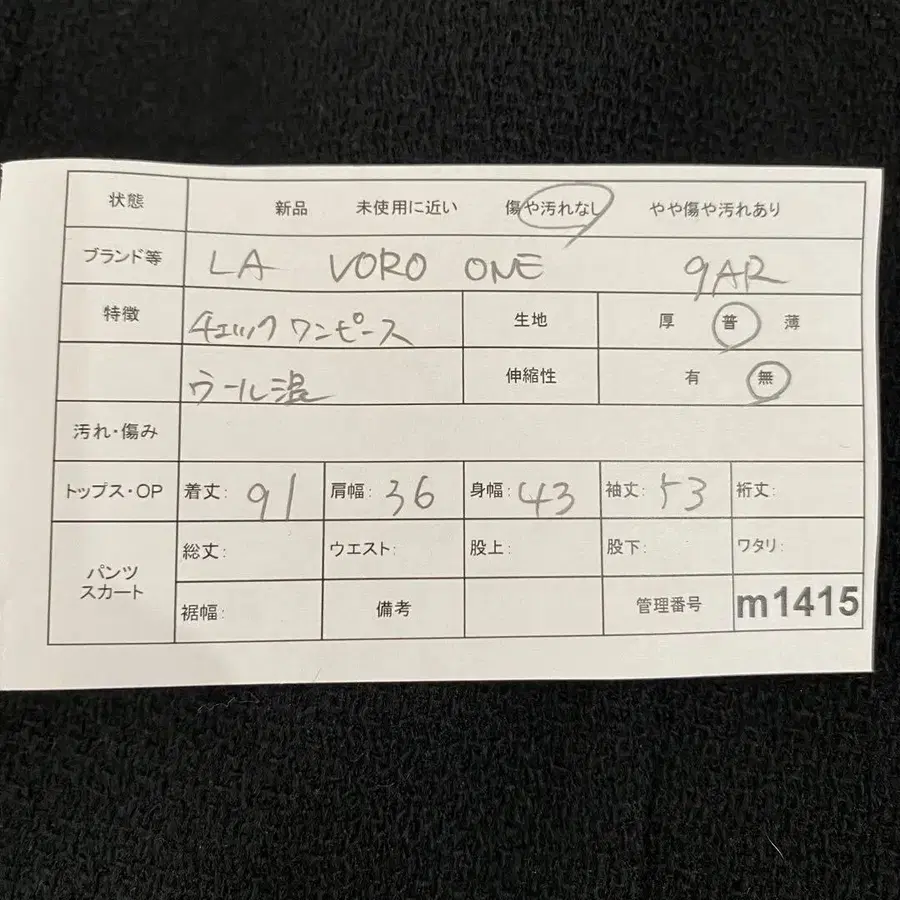 状態 新品 未使用に近い 傷や汚れなし やや傷や汚れあり
ブランド等 LA VORO ONE 9AR
特徴 チェックワンピース 生地 厚 普 薄
ウール混 伸縮性 有 無
汚れ・傷み
トップス・OP 着丈: 91 肩幅: 36 身幅: 43 袖丈: 53 裄丈:
パンツ スカート 総丈: ウエスト: 股上: 股下: ワタリ:
裾幅: 備考 管理番号 m1415